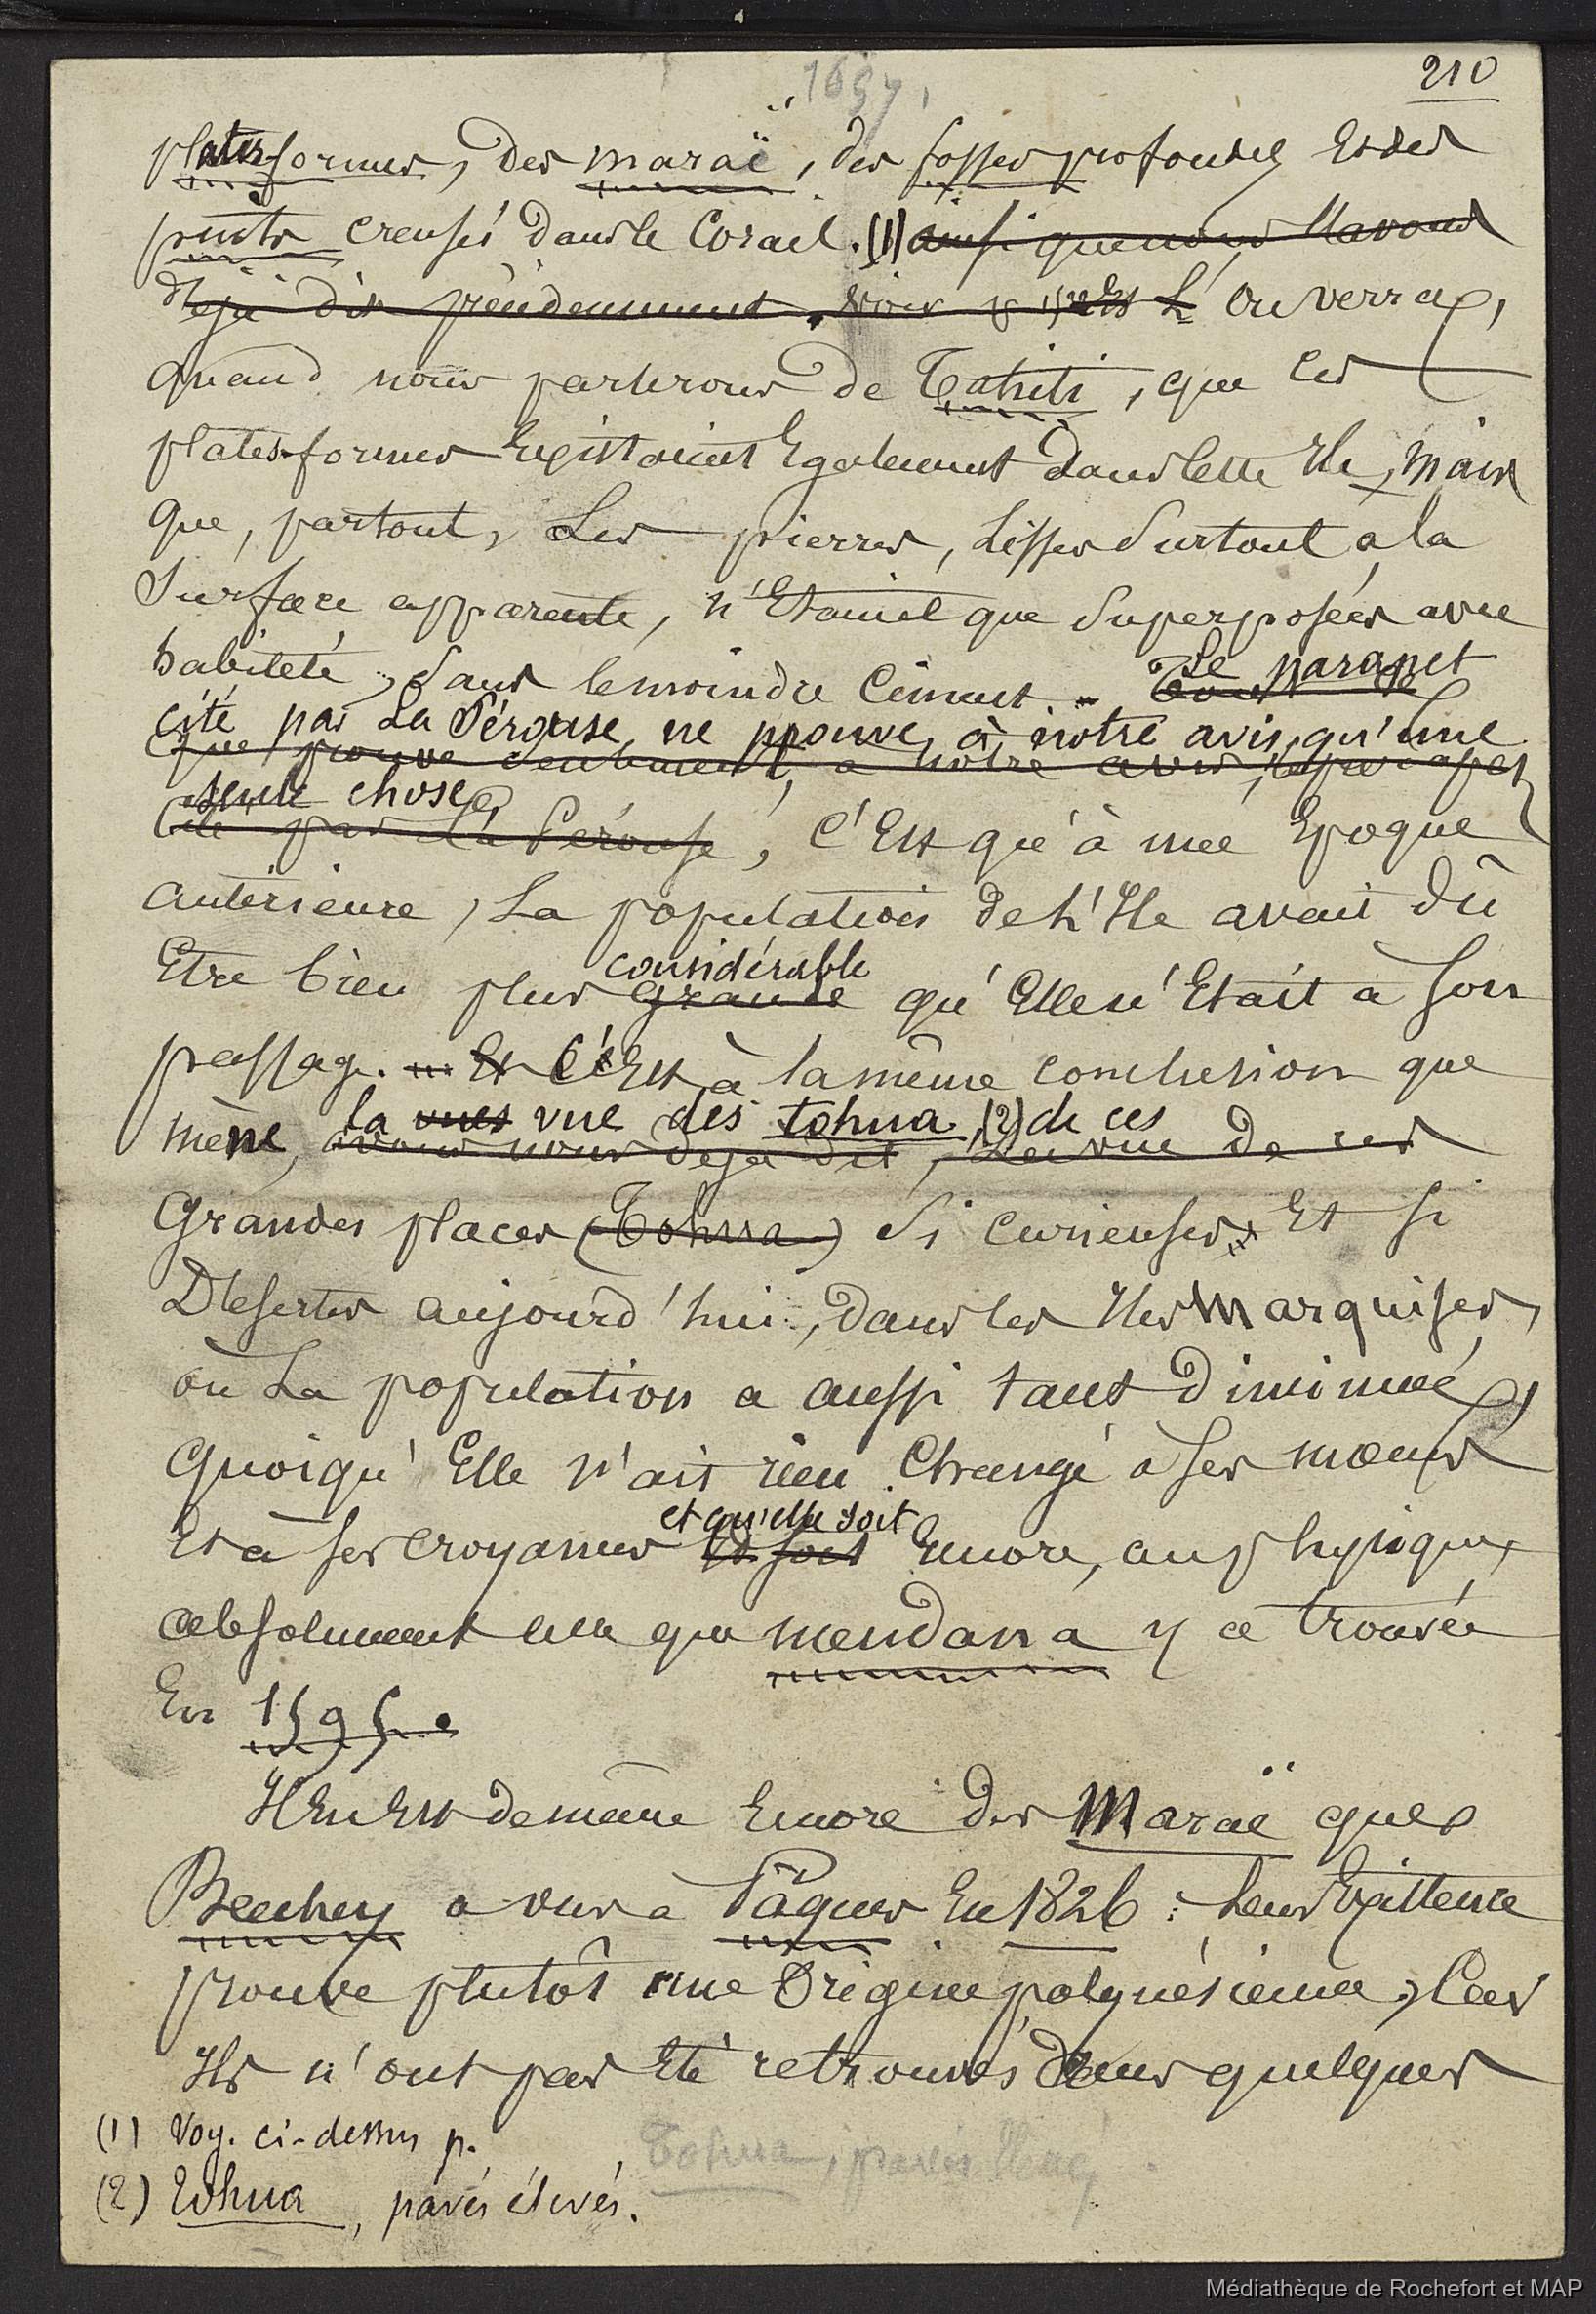 210
1657,
plates-formes, des maraë, des fosses profondes Et des
puits creusés dans le Corail. (1) ainsi que nous l'avons
déjà dit précédemment. voir L' On verra,
quand nous parlerons de Tahiti, que ces
plates-formes Existaient Egalement dans cette Ile, mais
que, partout, Les pierres, Lisses Surtout à la
Surface apparente, n'Etaient que Superposées avec
habileté, Sans le moindre Ciment. - Le parapet
cité par La Pérouse, ne prouve, à notre avis, qu'une
que prouve seulement, à notre avis, le parapet
seule chose
Cité par La Pérouse, C'Est qu'à une Epoque
antérieure, La population de L'Ile avait dû
Etre bien plus grande considérable qu'Elle n'Etait à Son
passage. Et C'Est à la même conclusion que
la vues vue des tohua, (2) de ces
mène, avons nous déjà dit, La vue de ces
Grandes places (Tohua) Si Curieuses Et Si
Désertes aujourd'hui, dans les Iles Marquises,
où La population a aussi tant Diminué,
Quoiqu'Elle n'ait rien Changé à Ses mœurs
et qu'elle soit
Et à Ses croyances Et soit Encore, au physique,
absolument celle que Mendana y a trouvée
En 1595.
Il En Est de même Encore des Maraë que
Beechey a vus à Pâques En 1826 : Leur Existence
prouve plutôt une Origine polynésienne, Car
Ils n'ont pas Eté retrouvés dans quelques
(1) Voy. ci-dessus p.
Tohua, pavés élevés
(2) Tohua, pavés élevés.
Médiathèque de Rochefort et MAP